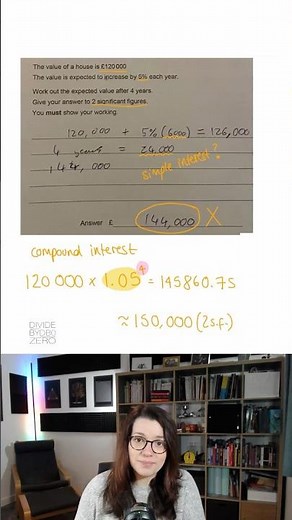 The value of a house is £120 000
The value is expected to increase by 5% each year.
Work out the expected value after 4 years.
Give your answer to 2 significant figures.
You must show your working.
120,000 + 5% (6000) = 126,000
4 years = 24,000
144,000
simple interest?
Answer £ 144,000 X
compound interest
120 000 × 1.05⁴ = 145860.75
≈ 150,000 (2s.f.)
DIVIDE
BY
ZERO